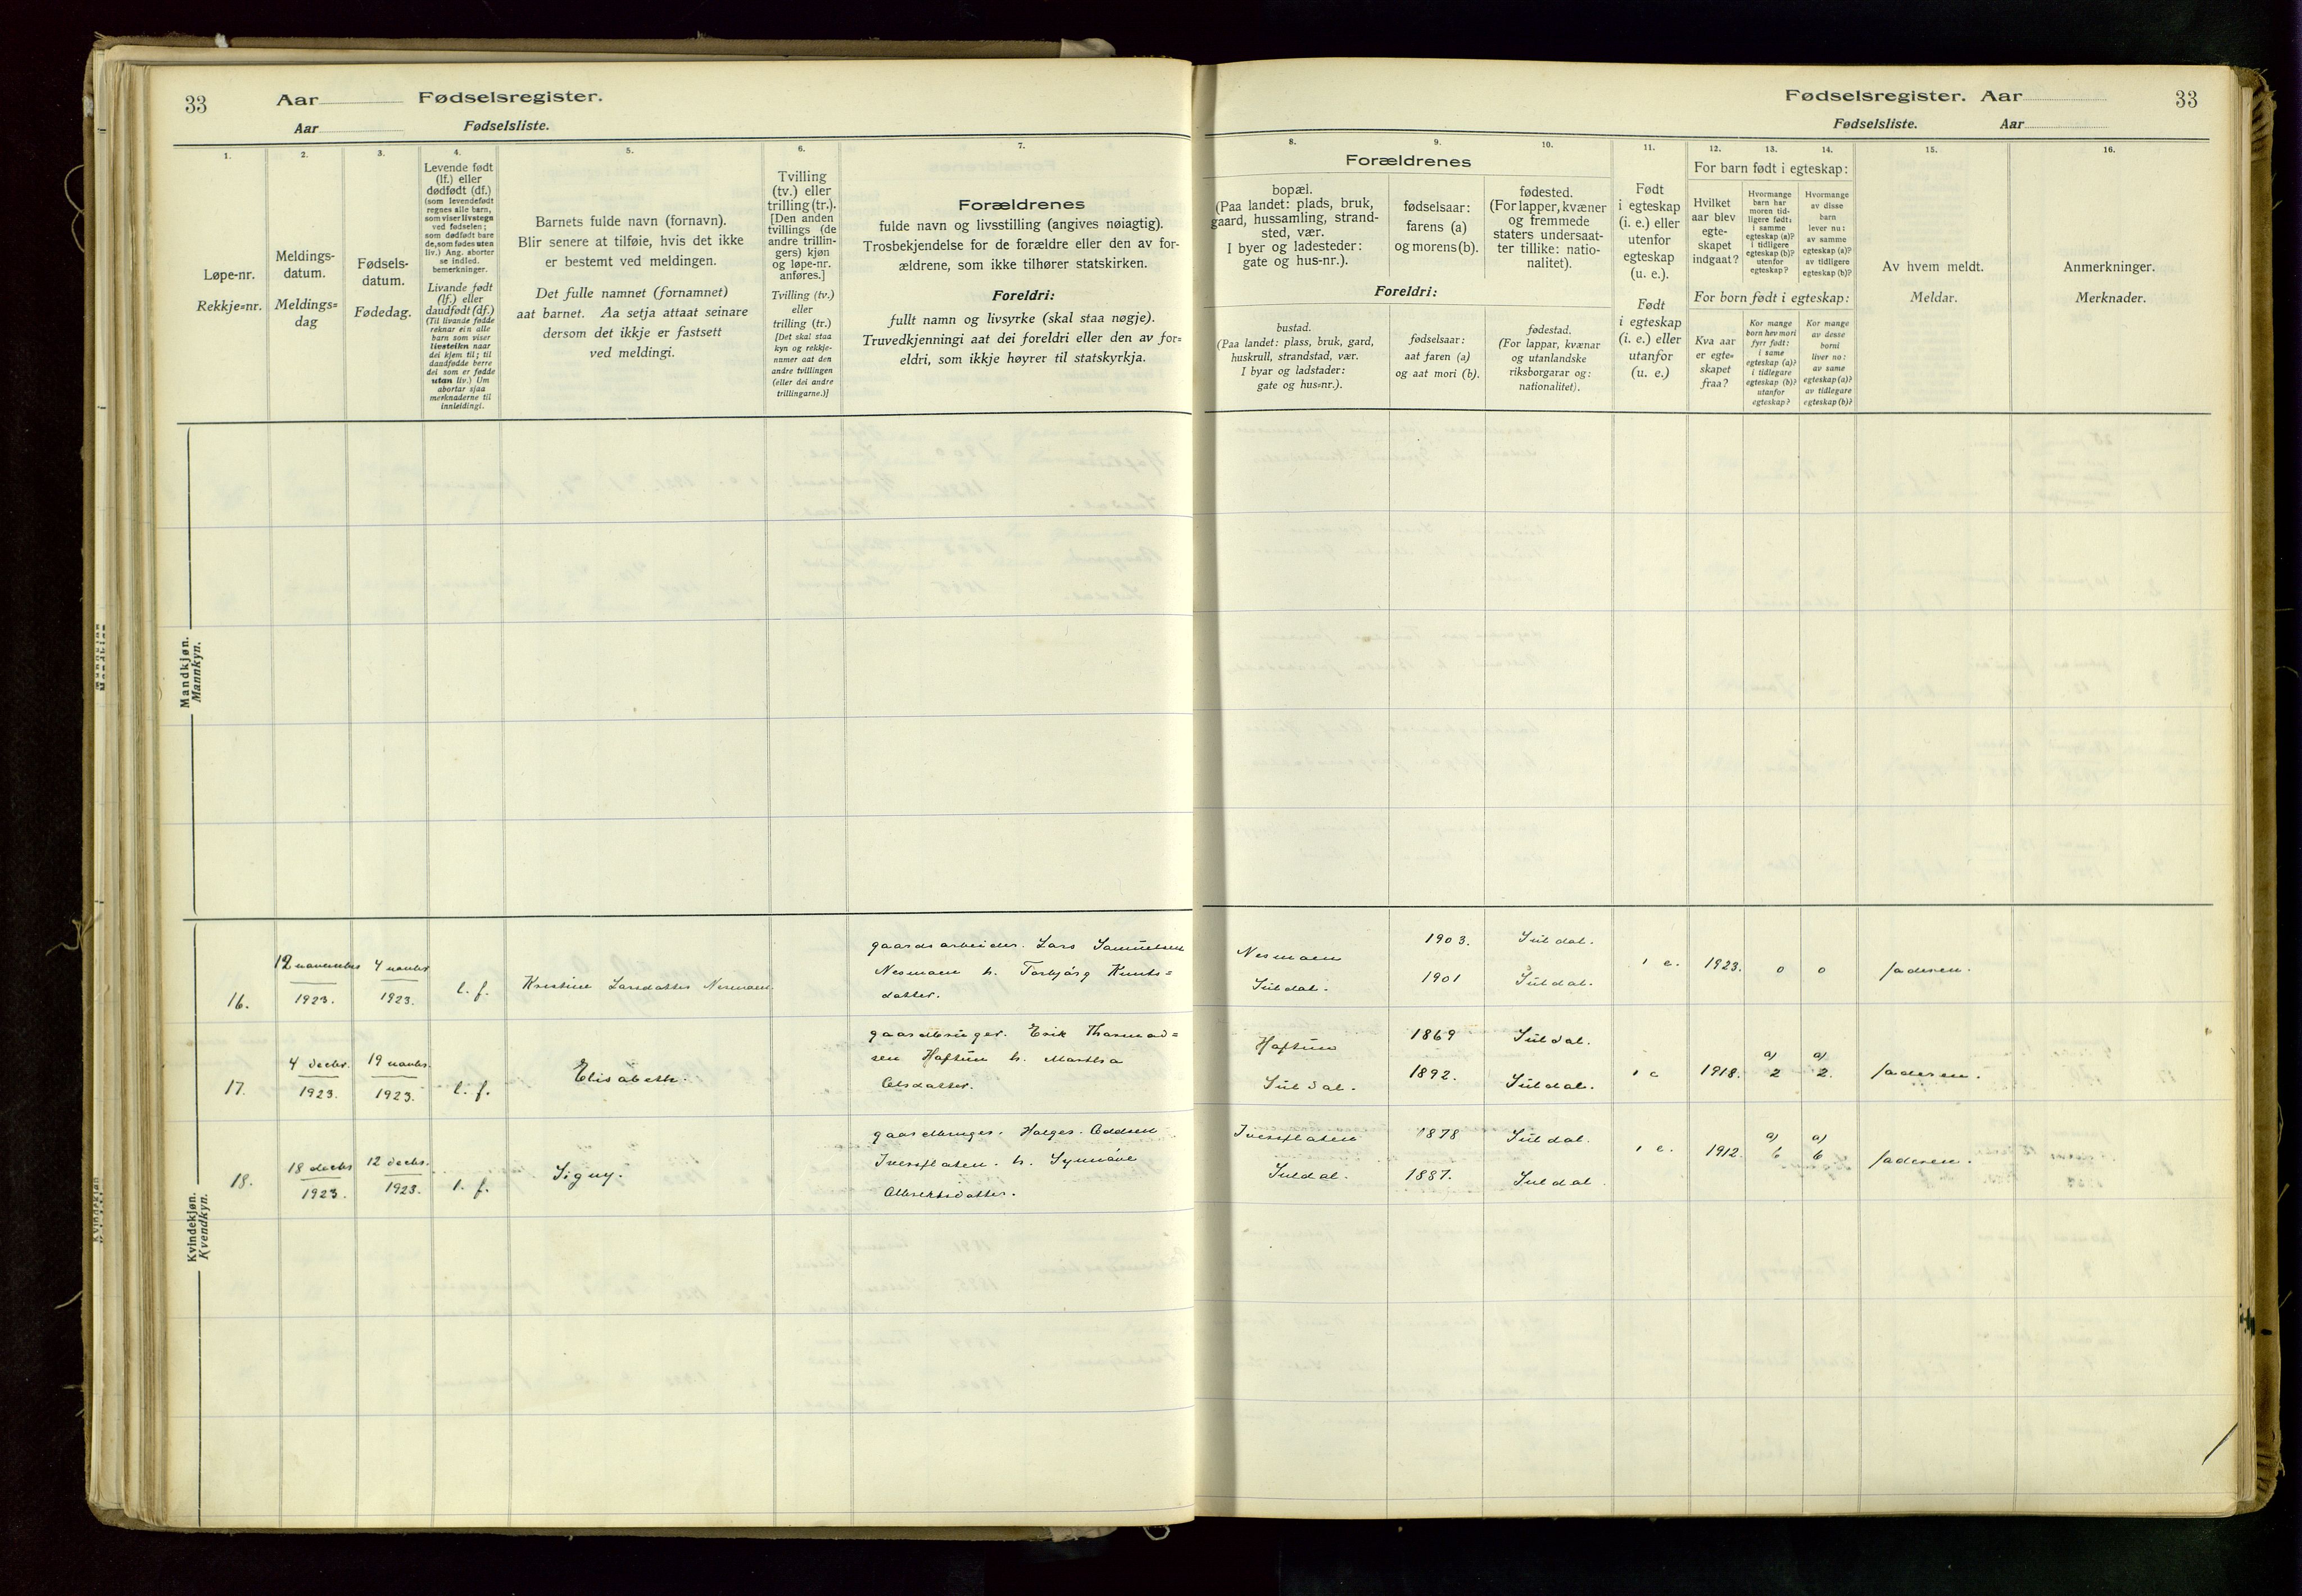 33
Aar
Fødselsregister.
Aar
Fødselsliste.
1.
Løpe-nr.
Rekkje=nr.
2.
Meldings-
datum.
Meldings=
dag
3.
Fødsels-
datum.
Fødedag.
4.
Levende født
(lf.) eller
dødfødt (df.)
(som levendefødt
regnes alle barn,
som viser livstegn
ved fødselen;
som dødfødt bare
de, som fødes uten
liv.) Ang. aborter
se indled.
bemerkninger.
Livande født
(lf.) eller
daudfødt (df.)
(Til livande fødde
reknar ein alle
barn som viser
livsteikn naar
dei kjem til; til
daudfødde berre
dei som er fødde
utan liv.) Um
abortar sjaa
merknaderne til
innleidingi.
5.
Barnets fulde navn (fornavn).
Blir senere at tilføie, hvis det ikke
er bestemt ved meldingen.
Det fulle namnet (fornamnet)
aat barnet. Aa setja attaat seinare
dersom det ikkje er fastsett
ved meldingi.
6.
Tvilling
(tv.) eller
trilling (tr.).
[Den anden
tvillings (de
andre trillin-
gers) kjøn
og løpe-nr.
anføres.]
Tvilling (tv.)
eller
trilling (tr.)
[Det skal staa
kyn og rekkje-
numer aat den
andre tvillingen
(eller dei andre
trillingarne.)]
7.
Forældrenes
fulde navn og livsstilling (angives nøiagtig).
Trosbekjendelse for de forældre eller den av for-
ældrene, som ikke tilhører statskirken.
Foreldri:
fullt namn og livsyrke (skal staa nøgje).
Truvedkjenningi aat dei foreldri eller den av for=
eldri, som ikkje høyrer til statskyrkja.
Mandkjøn.
Mannkyn.
16.
12 novembr
1923.
4 novbr
1923.
l. f.
Kristine Larsdatter Nesmoen.
gaardsarbeider. Lars Samuelsen
Nesmoen h. Torbjørg Knuts=
datter.
17.
4 decbr.
1923.
19 novbr.
1923.
l. f.
Elisabeth.
gaardbruger. Erik Thormod=
sen Haftun h. Martha
Olsdatter.
18.
18 decbr
1923.
12 decbr.
1923.
l. f.
Signy.
gaardbruger. Holger Oddsen
Ivesflaten. h. Synnøve
Albrektsdatter.
Kvindekjøn.
Kvendkyn.
Fødselsregister. Aar
33
Fødselsliste.
Aar
Forældrenes
8.
bopæl.
(Paa landet: plads, bruk,
gaard, hussamling, strand-
sted, vær.
I byer og ladesteder:
gate og hus-nr.).
9.
fødselsaar:
farens (a)
og morens (b).
10.
fødested.
(For lapper, kvæner
og fremmede
staters undersaat-
ter tillike: natio-
nalitet).
Foreldri:
bustad.
(Paa landet: plass, bruk, gard,
huskrull, strandstad, vær.
I byar og ladstader:
gate og hus=nr.).
fødselsaar:
aat faren (a)
og aat mori (b).
fødestad.
(For lappar, kvænar
og utanlandske
riksborgarar og:
nationalitet).
11.
Født
i egteskap
(i. e.) eller
utenfor
egteskap
(u. e.).
Født
i egteskap
(i. e.) eller
utanfor
(u. e.)
12.
13.
14.
For barn født i egteskap:
Hvilket
aar blev
egte-
skapet
indgaat?
Hvormange
barn har
moren tid-
ligere født:
i samme
egteskap (a)?
i tidligere
egteskap (b)?
utenfor
egteskap?
Hvormange
av disse
barn
lever nu:
av samme
egteskap (a)?
av tidligere
egteskap (b)?
For born født i egteskap:
Kva aar
er egte=
skapet
fraa?
Kor mange
born hev mori
fyrr født:
i same
egteskap (a)?
i tidlegare
egteskap (b)?
utanfor
egteskap?
Kor mange
av desse
borni
liver no:
av same
egteskap (a)?
av tidlegare
egteskap (b)?
15.
Av hvem meldt.
Meldar.
16.
Anmerkninger.
Merknader.
Nesmoen
Suldal.
1903.
1901
Suldal.
Suldal.
i e.
1923.
0
0
faderen.
Haftun
Suldal.
1869
1892.
Suldal.
Suldal.
i e
1918.
a)
2
a)
2.
faderen.
Ivesflaten
Suldal.
1878
1887.
Suldal.
Suldal
i e.
1912.
a)
6
a)
6
faderen.